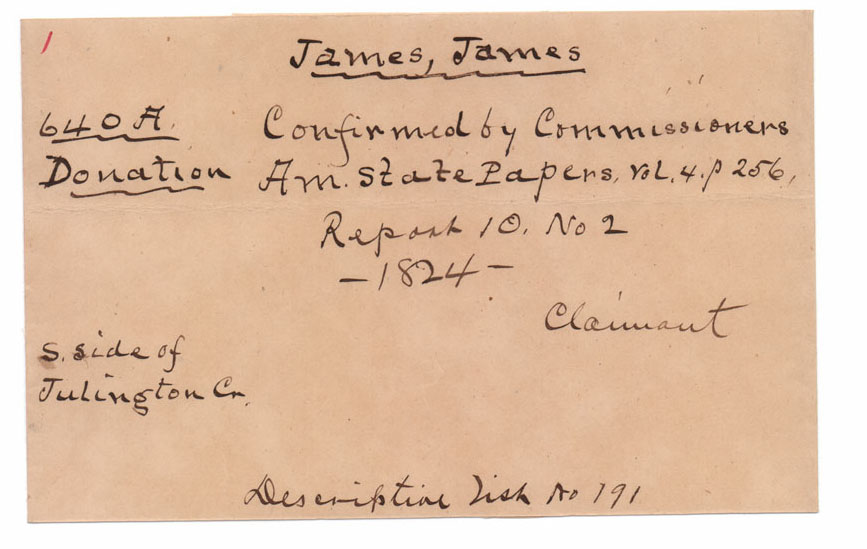 1
James, James
640 A. Confirmed by Commissioners
Donation Am. State Papers, vol. 4. p 256,
Report 10. No 2
- 1824 -
Claimant
S. side of
Julington Cr.
Descriptive List No 191